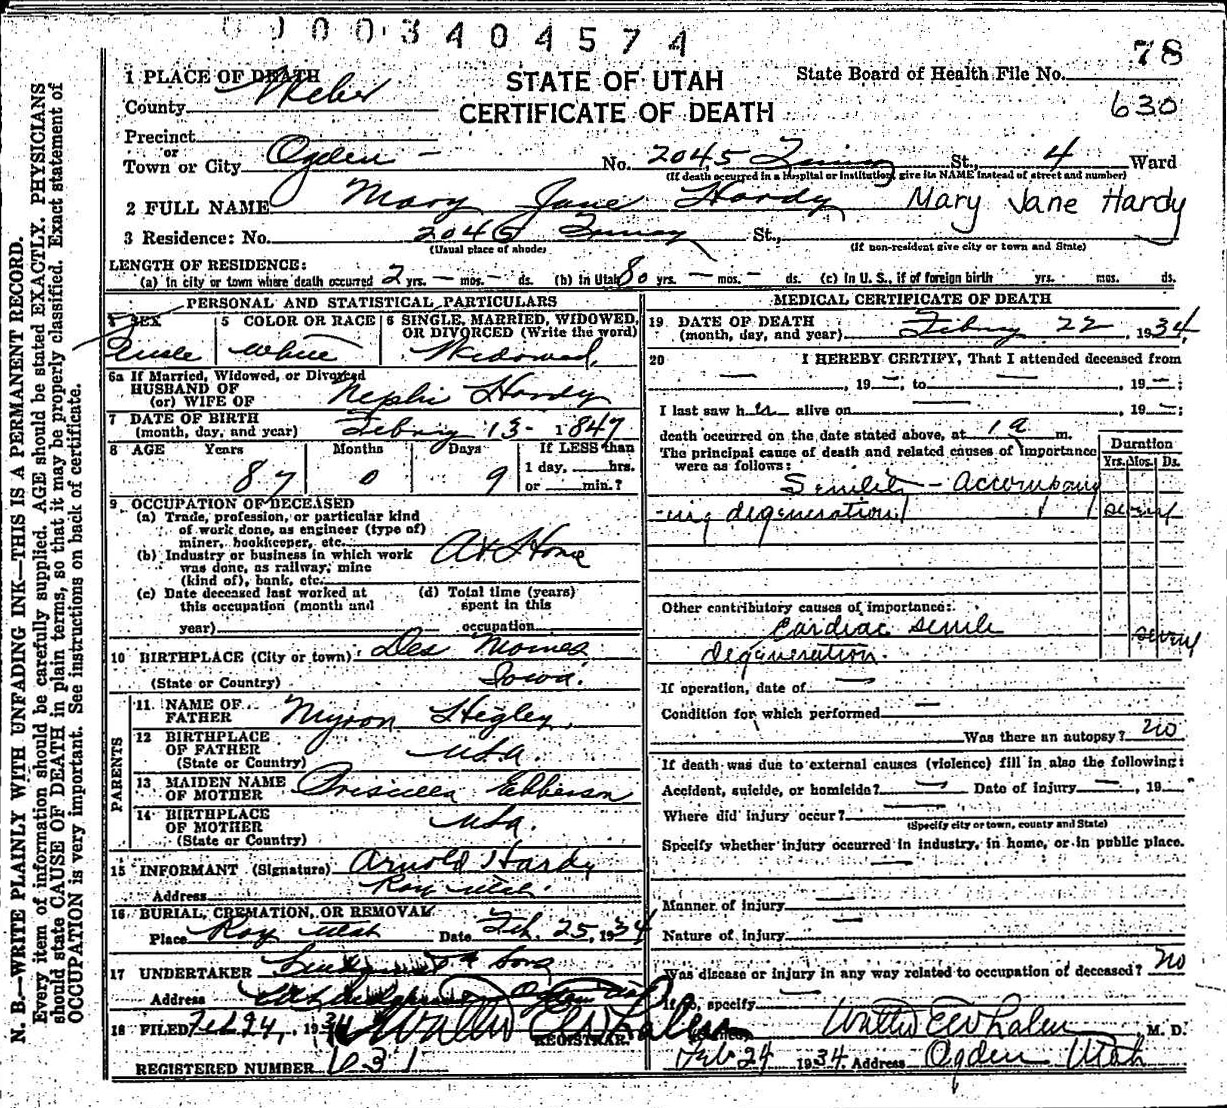 0 9 0 0 3 4 0 4 5 7 4
78
1 PLACE OF DEATH
STATE OF UTAH
State Board of Health File No.
County Weber
CERTIFICATE OF DEATH
630
Precinct
or
Town or City Ogden - No. 2045 Quincy St., 4 Ward
(If death occurred in a Hospital or Institution, give its NAME instead of street and number)
2 FULL NAME Mary Jane Hardy Mary Jane Hardy
3 Residence: No. 2045 Quincy St.,
(Usual place of abode) (If non-resident give city or town and State)
LENGTH OF RESIDENCE:
(a) In city or town where death occurred 2 yrs. — mos. — ds. (b) In Utah 80 yrs. — mos. — ds. (c) In U. S., if of foreign birth yrs. mos. ds.
PERSONAL AND STATISTICAL PARTICULARS
4 SEX
5 COLOR OR RACE
6 SINGLE, MARRIED, WIDOWED, OR DIVORCED (Write the word)
Female White Widowed
6a If Married, Widowed, or Divorced
HUSBAND OF
(or) WIFE OF Nephi Hardy
7 DATE OF BIRTH
(month, day, and year) Febry 13 - 1847
8 AGE Years Months Days If LESS than
1 day, hrs.
87 0 9 or min.?
9 OCCUPATION OF DECEASED
(a) Trade, profession, or particular kind
of work done, as engineer (type of)
miner, bookkeeper, etc.
At Home
(b) Industry or business in which work
was done, as railway, mine
(kind of), bank, etc.
(c) Date deceased last worked at
this occupation (month and
year)
(d) Total time (years)
spent in this
occupation
10 BIRTHPLACE (City or town) Des Moines
(State or Country) Iowa.
PARENTS
11 NAME OF
FATHER Myron Higley
12 BIRTHPLACE
OF FATHER USA.
(State or Country)
13 MAIDEN NAME
OF MOTHER Priscilla Ebberson
14 BIRTHPLACE
OF MOTHER USA.
(State or Country)
15 INFORMANT (Signature) Arnold Hardy
Address Roy Utah.
16 BURIAL, CREMATION, OR REMOVAL
Place Roy Utah Date Feb. 25, 1934
17 UNDERTAKER & Sons
Address Ogden
18 FILED Feb 24, 1934 Walter E Whalen
REGISTRAR.
REGISTERED NUMBER
MEDICAL CERTIFICATE OF DEATH
19 DATE OF DEATH
(month, day, and year) Febry 22, 1934,
20 I HEREBY CERTIFY, That I attended deceased from
— , 19 — ; to — , 19 — ;
I last saw her alive on — , 19 — ;
death occurred on the date stated above, at 1 a m.
The principal cause of death and related causes of importance
were as follows:
Duration
Yrs. Mos. Ds.
Senility - accompany
-ing degeneration several
Other contributory causes of importance:
Cardiac senile several
degeneration.
If operation, date of —
Condition for which performed —
Was there an autopsy? no
If death was due to external causes (violence) fill in also the following:
Accident, suicide, or homicide? — Date of injury — , 19 —
Where did injury occur? —
(Specify city or town, county and State)
Specify whether injury occurred in industry, in home, or in public place.
—
Manner of injury —
Nature of injury —
Was disease or injury in any way related to occupation of deceased? no
If so, specify —
Walter E Whalen M. D.
Feb 24 1934. Address Ogden Utah
N. B.—WRITE PLAINLY WITH UNFADING INK—THIS IS A PERMANENT RECORD.
Every item of information should be carefully supplied. AGE should be stated EXACTLY. PHYSICIANS
should state CAUSE OF DEATH in plain terms, so that it may be properly classified. Exact statement of
OCCUPATION is very important. See instructions on back of certificate.